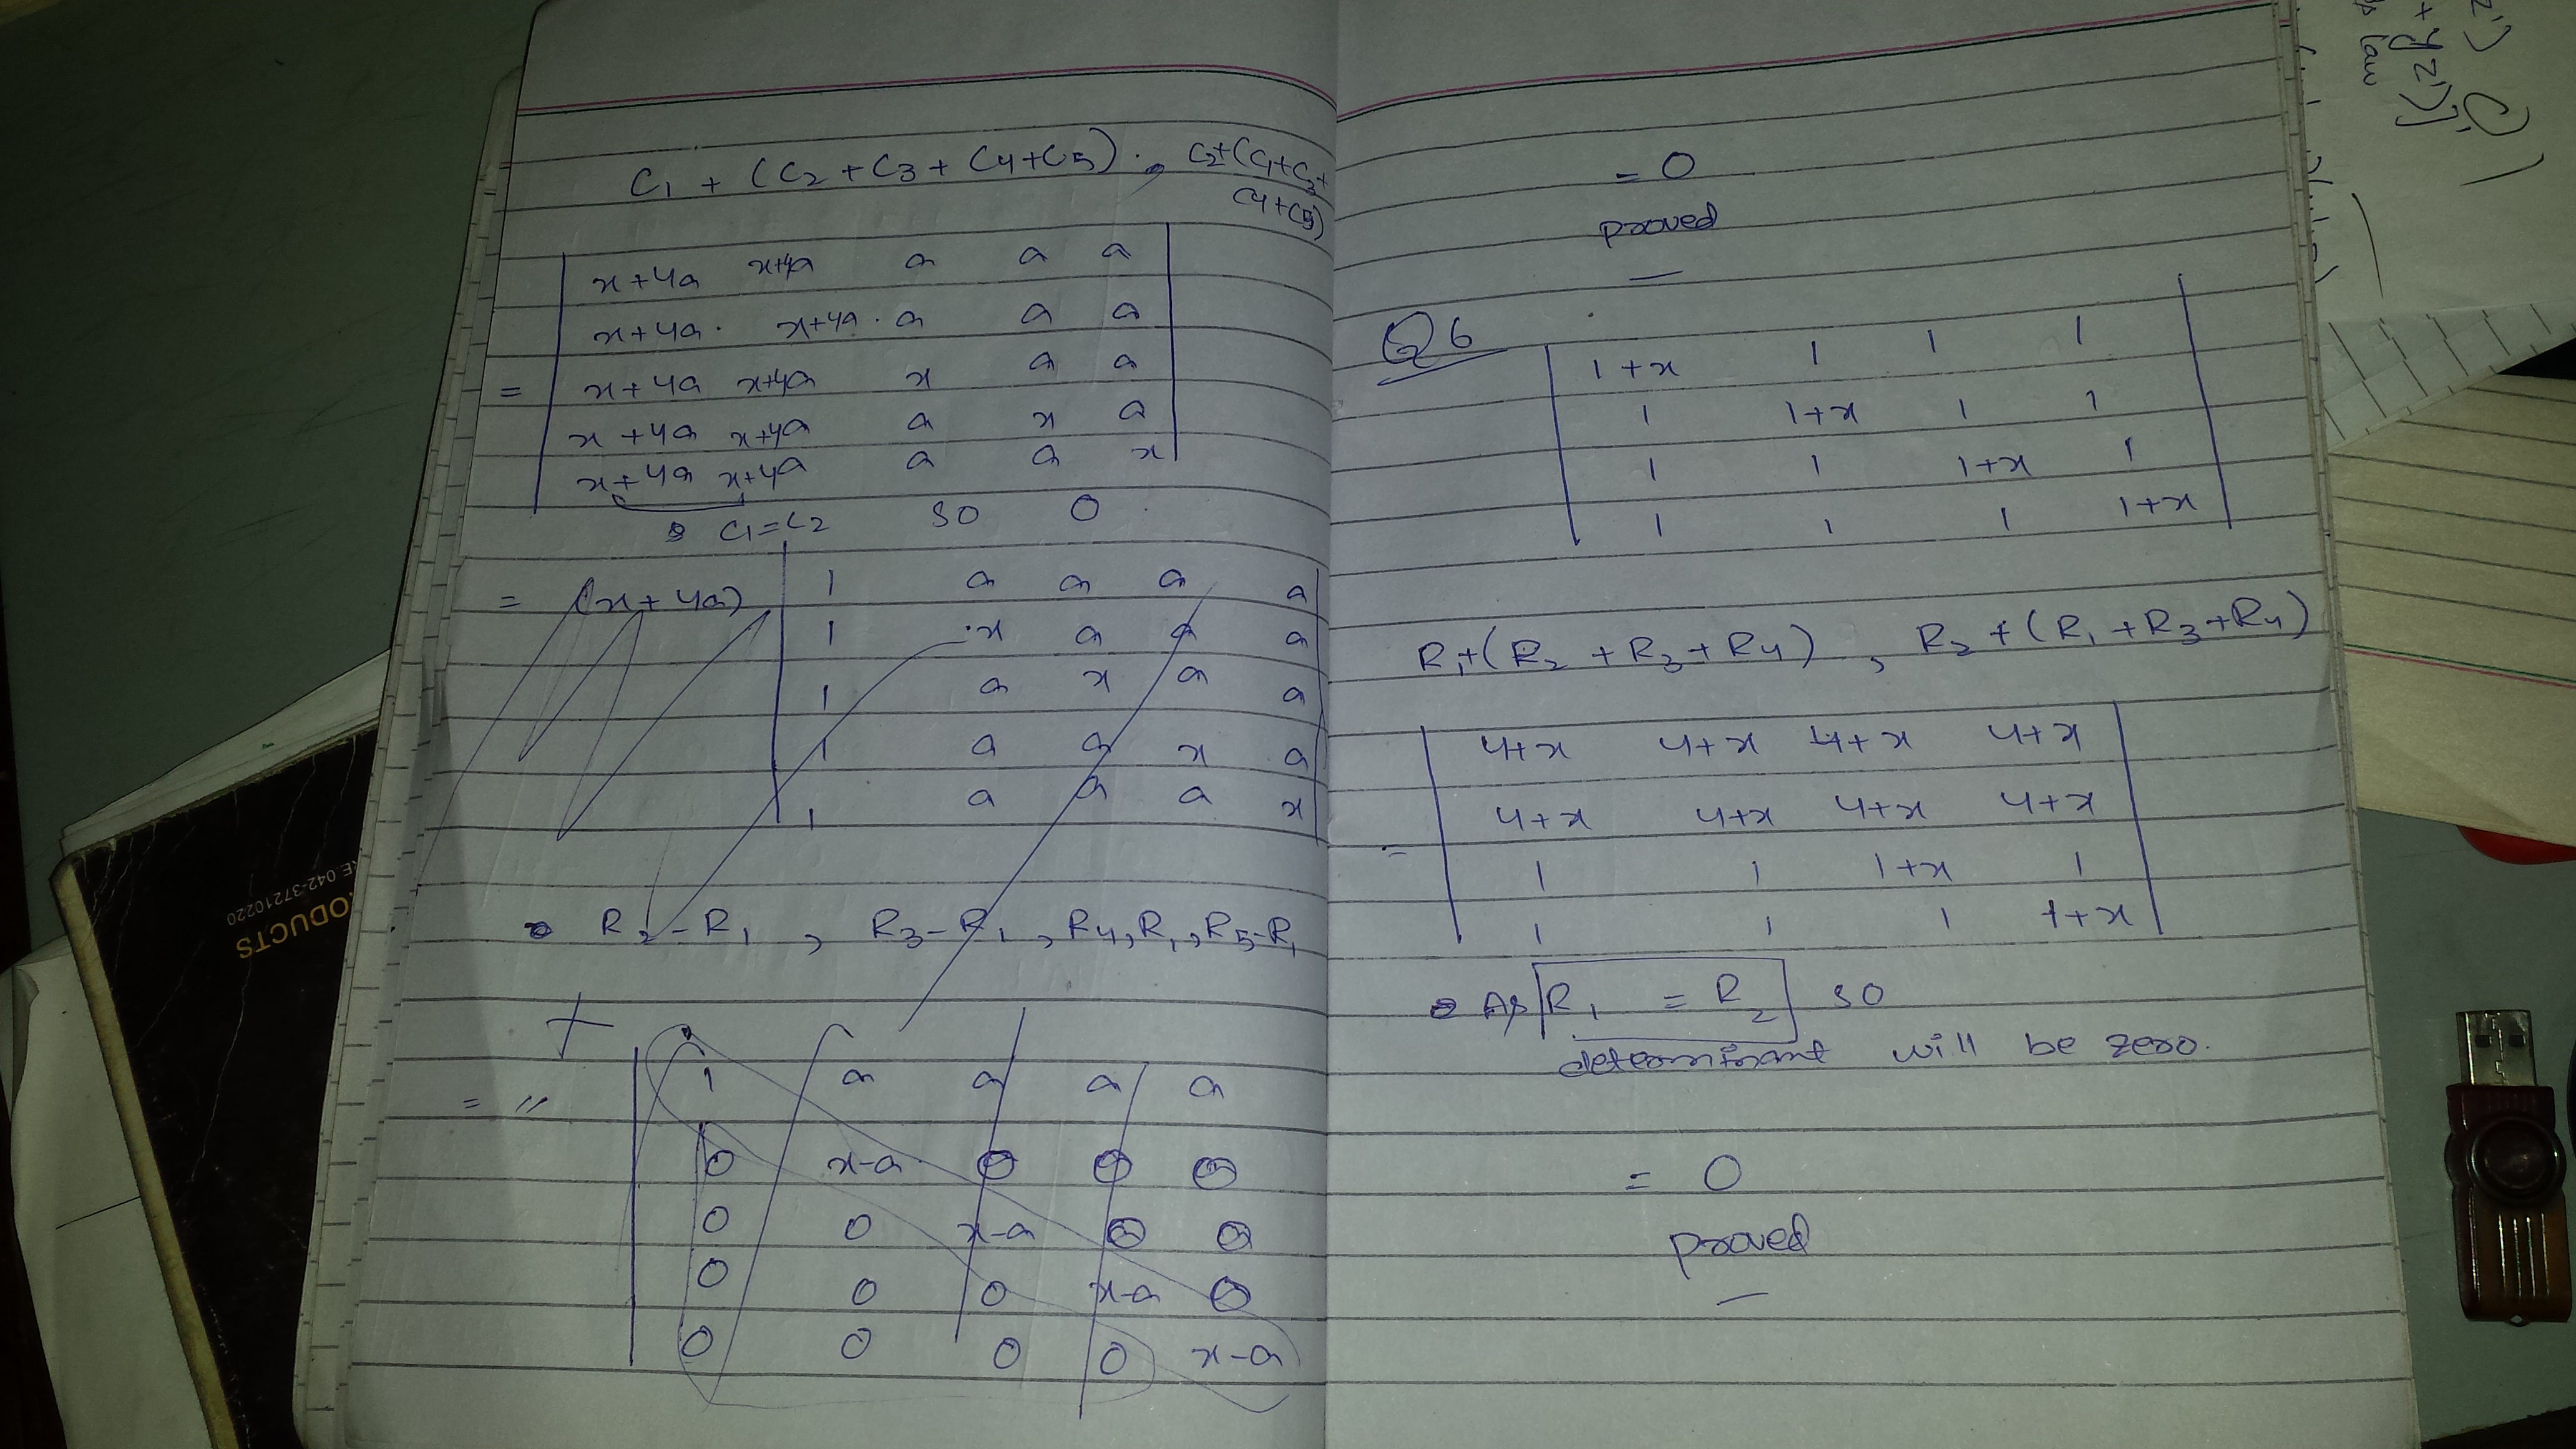 C1 + (C2 + C3 + C4 + C5) , C2+(C1+C3+
C4+C5)
x+4a x+4a a a a
x+4a x+4a a a a
= x+4a x+4a x a a
x+4a x+4a a x a
x+4a x+4a a a x
C1=C2 so 0
= (x+4a) 1 a a a a
1 x a a a
1 a x a a
1 a a x a
1 a a a x
R2-R1 , R3-R1 , R4,R1, R5-R1
= " 1 a a a a
0 x-a 0 0 0
0 0 x-a 0 0
0 0 0 x-a 0
0 0 0 0 x-a
= 0
proved
Q6
1+x 1 1 1
1 1+x 1 1
1 1 1+x 1
1 1 1 1+x
R1+(R2 + R3 + R4) , R2 + (R1 + R3 + R4)
4+x 4+x 4+x 4+x
= 4+x 4+x 4+x 4+x
1 1 1+x 1
1 1 1 1+x
As R1 = R2 so
determinant will be zero.
= 0
proved
ODUCTS
E 042-37210220
law